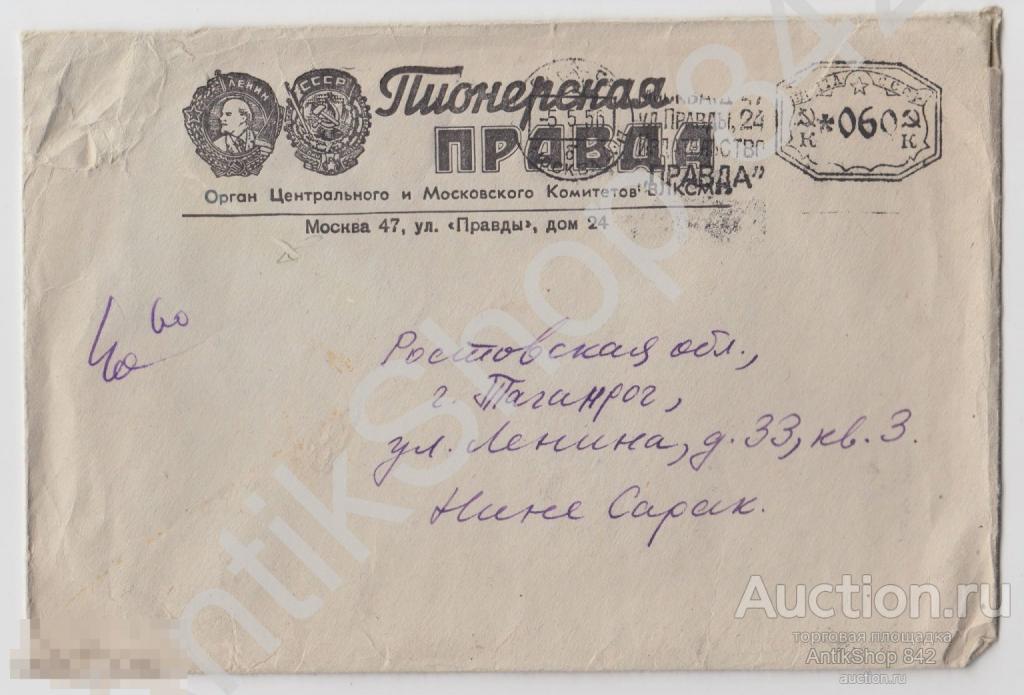 ЛЕНИН
СССР
Пионерская
ПРАВДА
Орган Центрального и Московского Комитетов ВЛКСМ
Москва 47, ул. «Правды», дом 24
-5.5.56
УЛ. ПРАВДЫ, 24
ИЗДАТЕЛЬСТВО
"ПРАВДА"
*060
К К
Ростовская обл.,
г. Таганрог,
ул. Ленина, д. 33, кв. 3.
Нине Сарак.
AntikShop 842
Auction.ru
торговая площадка
AntikShop 842
auction.ru